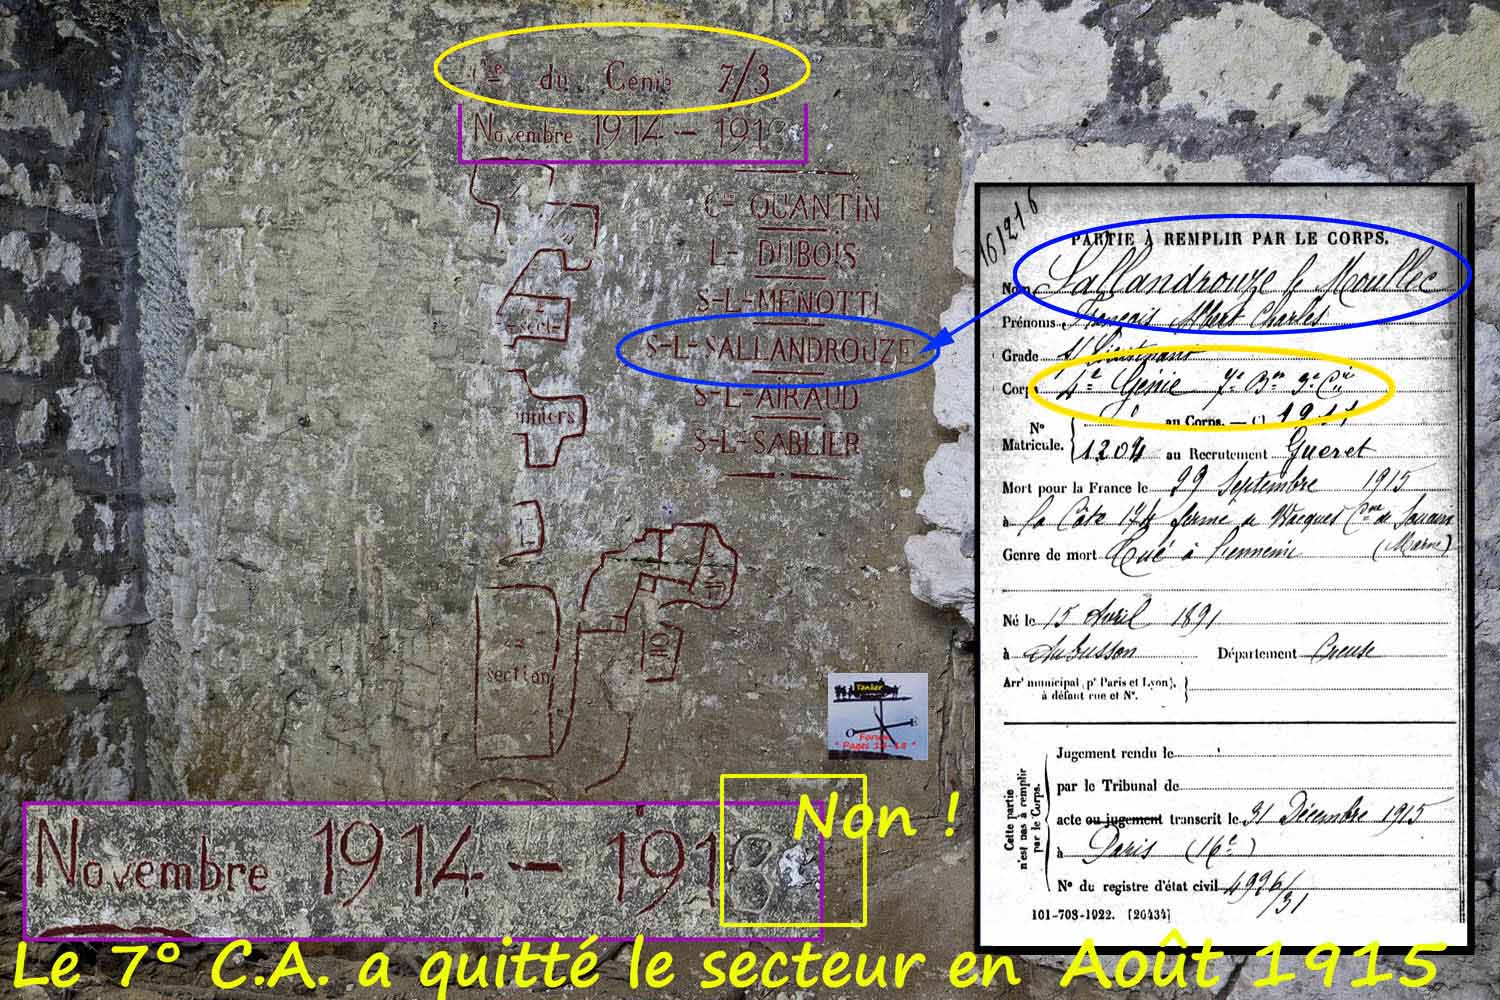 du Genie 7/3
Novembre 1914 - 191
C- QUANTIN
L- DUBOIS
S-L-MENOTTI
S-L-SALLANDROUZE
S-L-AIRAUD
S-L-SABLIER
section
Tanker
Forum
" Pages 14-18 "
Novembre 1914 - 191
Non !
Le 7° C.A. a quitté le secteur en Août 1915
161216
PARTIE À REMPLIR PAR LE CORPS.
Nom Sallandrouze le Moullec
Prénoms François Albert Charles
Grade S/Lieutenant
Corps 4e Génie 7e Bon 3e Cie
au Corps. —
N° Matricule. 1204 au Recrutement Gueret
Mort pour la France le 29 Septembre 1915
à la Côte 174 ferme de Wacques Cne de Souain
(Marne)
Genre de mort Tué à l'ennemi
Né le 15 Avril 1891
à Aubusson Département Creuse
Arrt municipal (pr Paris et Lyon),
à défaut rue et N°.
Cette partie n'est pas à remplir par le Corps.
Jugement rendu le
par le Tribunal de
acte ou jugement transcrit le 31 Décembre 1915
à Paris (16e)
N° du registre d'état civil 4996/31
101-708-1922. [26434]